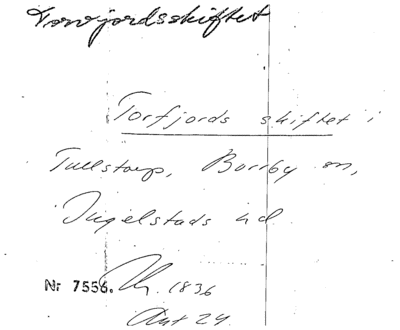 Torvjordsskiftet
Torfjords skiftet i
Tullstorp, Borrby sn,
Ingelstads hd
Nr 7556. 1836
Akt 24